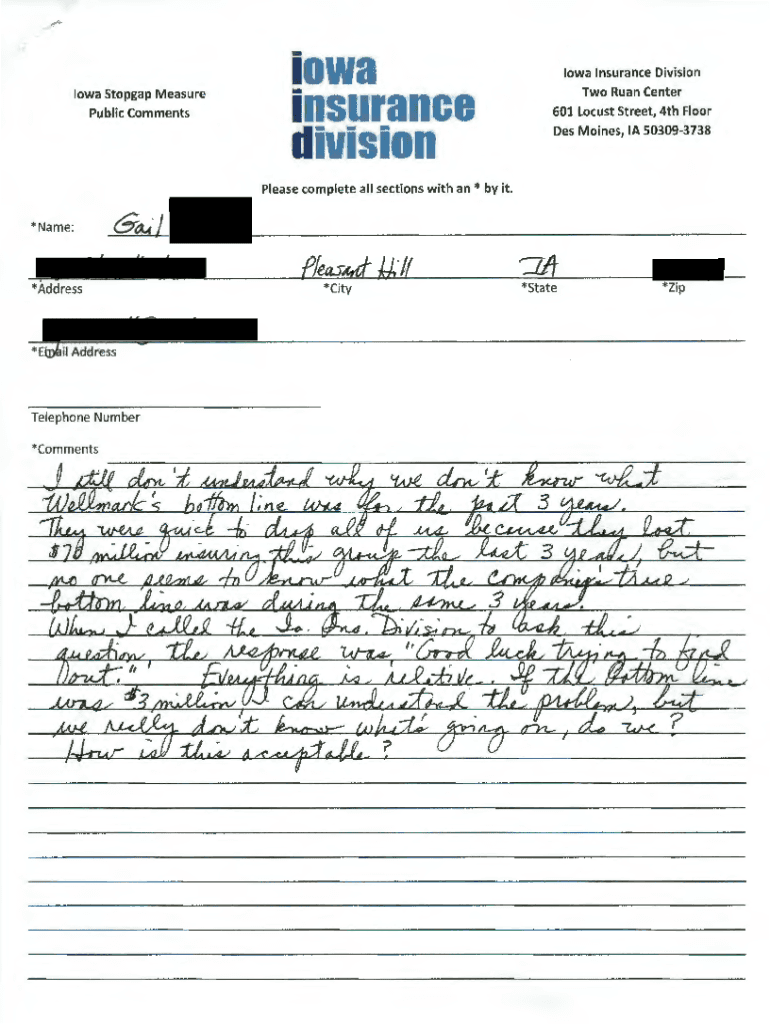 Iowa Stopgap Measure
Public Comments
iowa
insurance
division
Iowa Insurance Division
Two Ruan Center
601 Locust Street, 4th Floor
Des Moines, IA 50309-3738
Please complete all sections with an * by it.
*Name: Gail
Pleasant Hill IA
*Address *City *State *Zip
*Email Address
Telephone Number
*Comments
I still don't understand why we don't know what
Wellmark's bottom line was for the past 3 years.
They were quick to drop all of us because they lost
$70 million insuring this group the last 3 years, but
no one seems to know what the company's true
bottom line was during the same 3 years.
When I called the Ia. Ins. Division to ask this
question, the response was, "Good luck trying to find
out." Everything is relative. If the bottom line
was $3 million I can understand the problem, but
we really don't know what's going on, do we?
How is this acceptable?